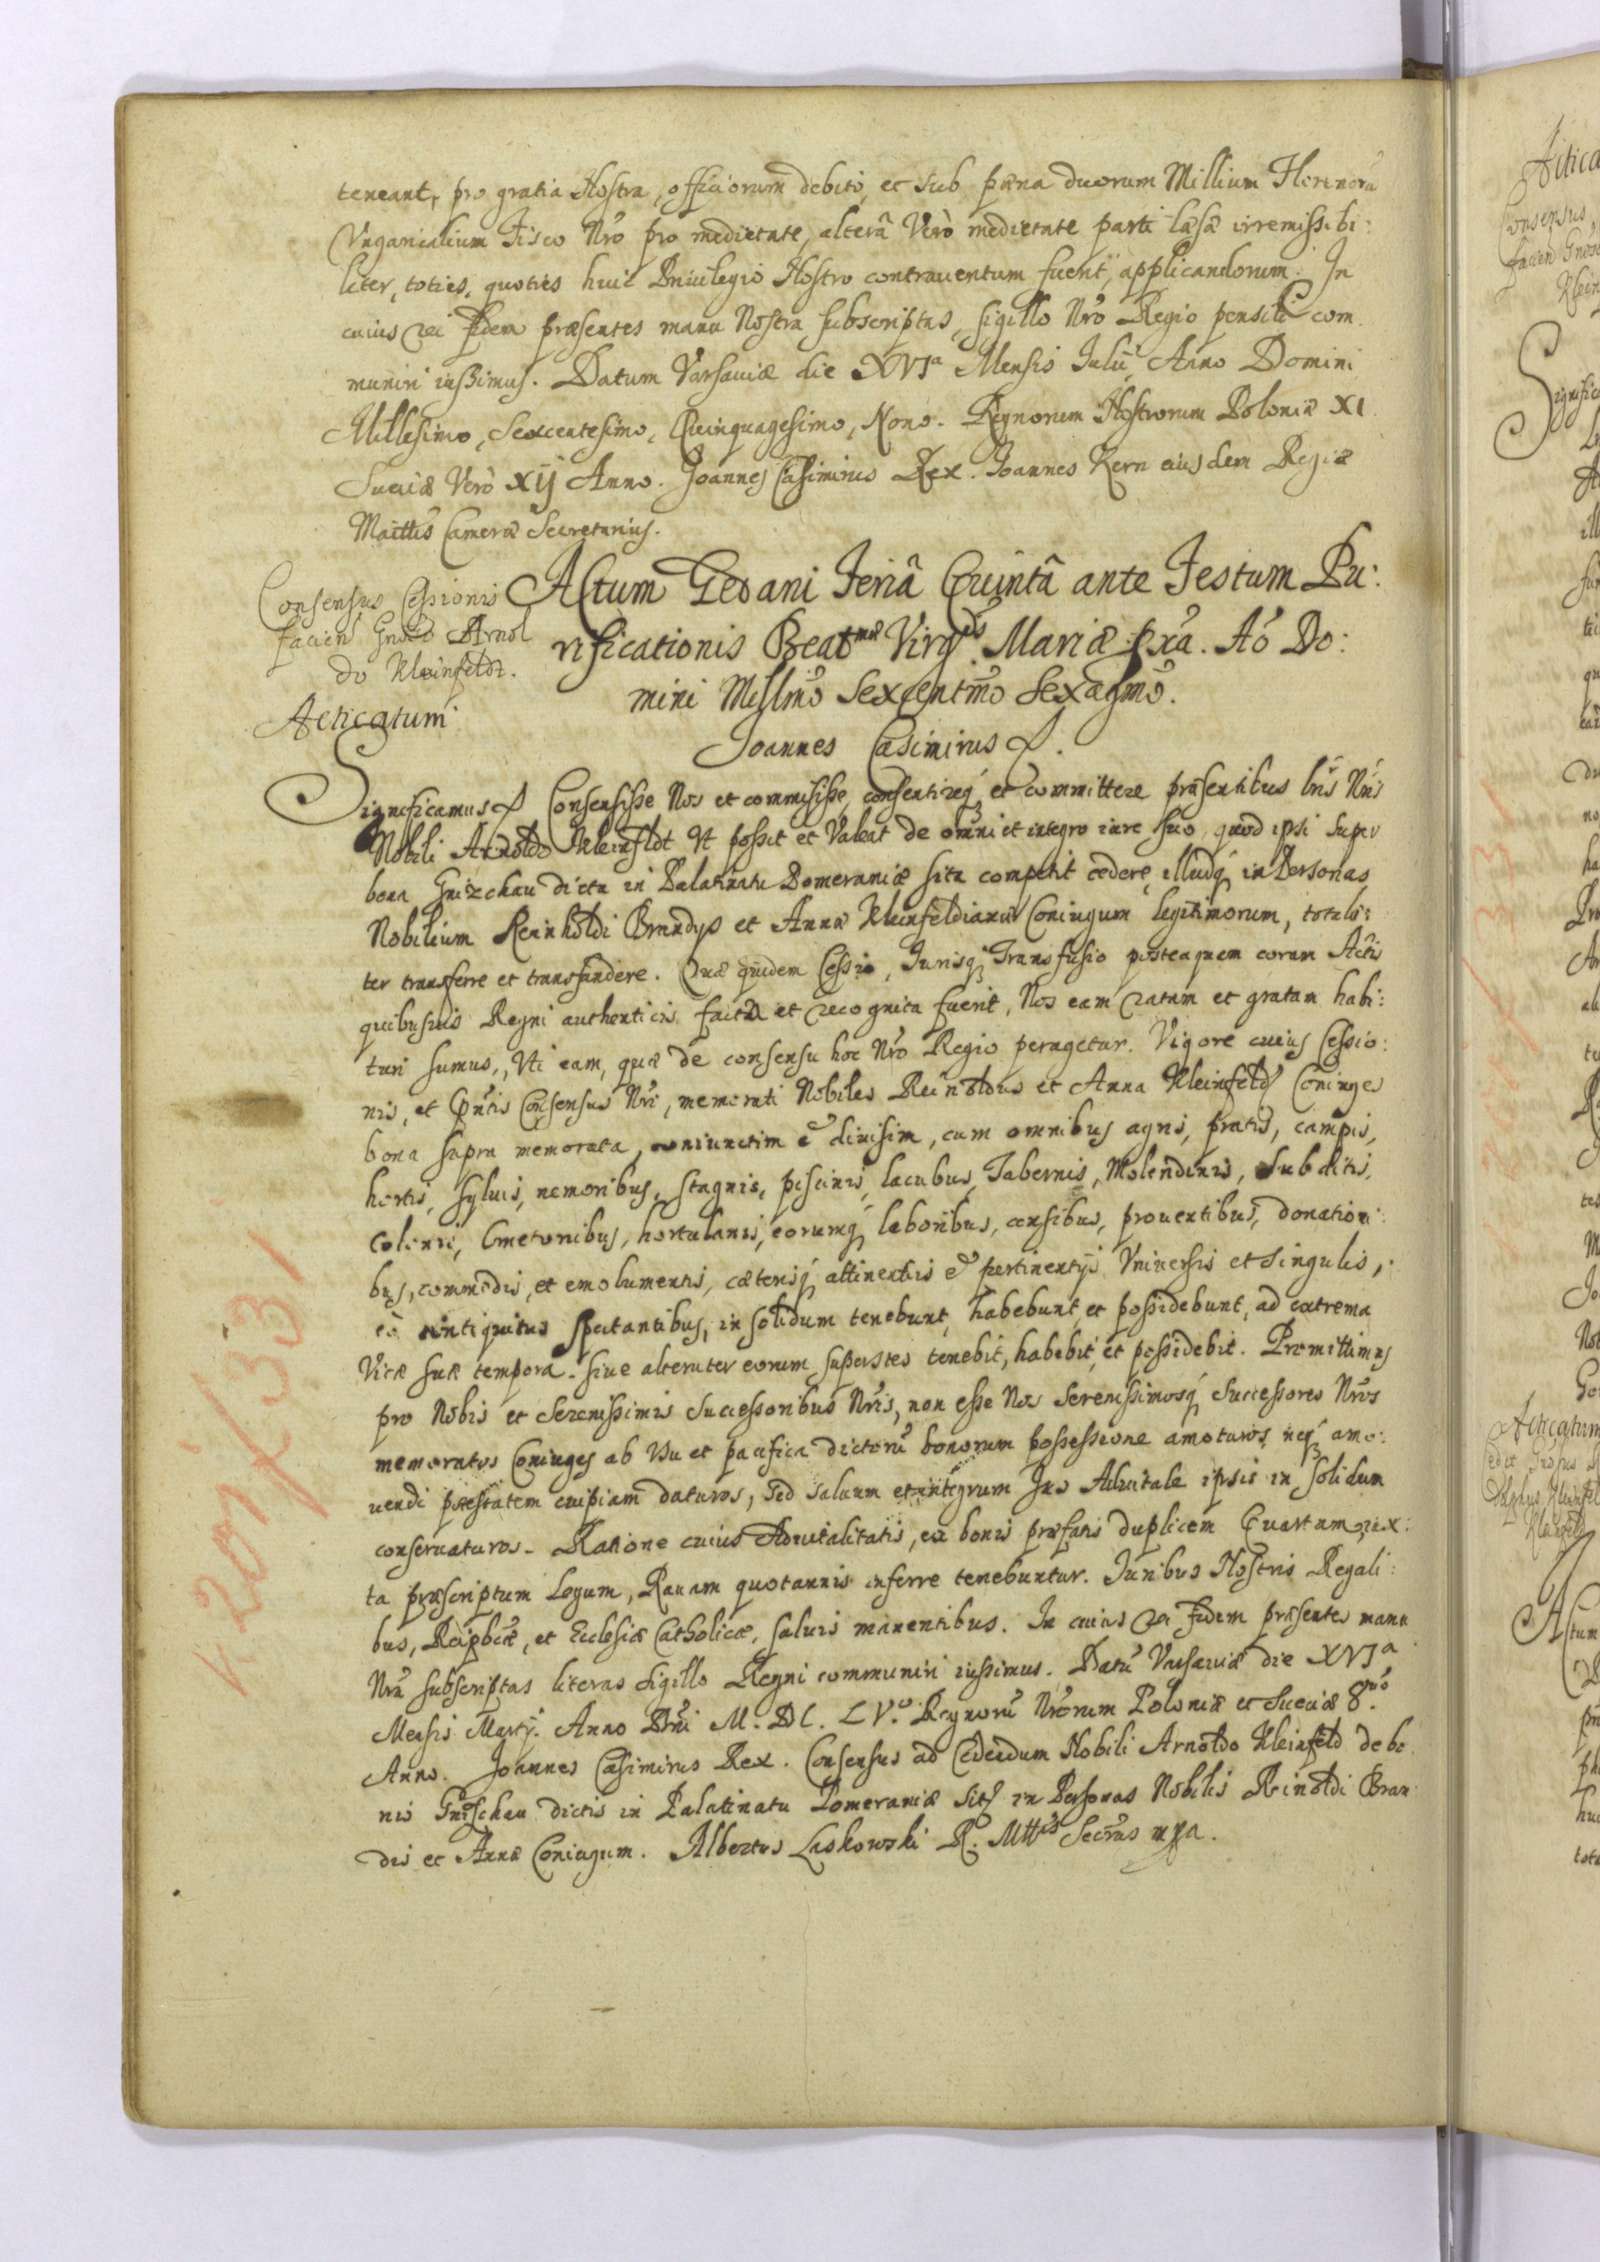 teneant, pro gratia Nostra, officiorum debito, et sub pæna duorum Millium Florenorũ
Vngaricalium Fisco Nrõ pro medietate, alterâ Verò medietate parti læsæ irremissibi:
liter, toties, quoties huic Priuilegio Nostro contrauentum fuerit, applicandorum. In
cuius rei fidem præsentes manu Nostra subscriptas, sigillo Nrõ Regio pensili com
muniri iussimus. Datum Varsauiæ die XVIa Mensis Iulij Anno Domini
Millesimo, Sexcentesimo, Quinquagesimo, Nono. Regnorum Nostrorum Poloniæ XI
Sueciæ Verò XIJ Anno. Joannes Casimirus Rex. Ioannes Kern eiusdem Regiæ
Maittis Cameræ Secretarius.
Consensus Cessionis
facien Gnoso Arnol
do Kleinfeldt.
Acticatum
Actum Gedani Feriâ Quintâ ante Festum Pu:
rificationis Beatmæ Virgis Mariæ prã. Aõ Do:
mini Millmõ Sexcentmõ Sexagmõ.
Joannes Casimirus
Significamus Consensisse Nos et commisisse, consentireq; et committere præsentibus lrĩs Nrĩs
Nobili Arnoldo Kleinfeldt Vt possit et Valeat de omni et integro iure suo, quod ipsi super
bona Gnizchau dicta in Palatinatu Pomeraniæ sita competit cedere, illudq; in Personas
Nobilium Reinholdi Brandys et Annæ Kleinfeldianæ Coniugum legitimorum, totali:
ter transferre et transfundere. Quæ quidem Cessio, Iurisq; Transfusio posteaquam coram Actis
quibusuis Regni authenticis facta et recognita fuerit, Nos eam ratam et gratam habi:
turi sumus, Vti eam, quæ de consensu hoc Nrõ Regio peragetur. Vigore cuius Cessio:
nis, et Pñtis Consensus Nrĩ, memorati Nobiles Reinoldus et Anna Kleinfeldt Coniuges
bona supra memorata, coniunctim & diuisim, cum omnibus agris, pratis, campis,
hortis, syluis, nemoribus, stagnis, piscinis, lacubus, Tabernis, Molendinis, Subditis,
Colonis, Cmetonibus, hortulanis, eorumq; laboribus, censibus, prouentibus, donationi:
bus, commodis, et emolumentis, cæterisq; attinentiis & pertinentijs Vniuersis et singulis,
eò antiquitus spectantibus, in solidum tenebunt, habebunt, et possidebunt, ad extrema
Vitæ suæ tempora. siue alteruter eorum superstes tenebit, habebit, et possidebit. Promittimus
pro Nobis et Serenissimis Successoribus Nrĩs, non esse Nos Serenissimosq; Successores Nrõs
memoratos Coniuges ab Vsu et pacifica dictorũ bonorum possessione amoturos, neq; amo:
uendi potestatem cuipiam daturos, sed saluum et integrum Ius Aduitale ipsis in solidum
conseruaturos. Ratione cuius Aduitalitatis, ex bonis præfatis duplicem Quartam, iux:
ta præscriptum Legum, Rauam quotannis inferre tenebuntur. Iuribus Nostris Regali:
bus, Reipbcæ, et Ecclesiæ Catholicæ, saluis manentibus. In cuius rei fidem præsentes manu
Nrã subscriptas literas sigillo Regni communiri iussimus. Datũ Varsauiæ die XVIa
Mensis Martij. Anno Dñi M. DC. LV.o Regnorũ Nrõrum Poloniæ et Sueciæ 8.uo
Anno. Joannes Casimirus Rex. Consensus ad Cedendum Nobili Arnoldo Kleinfeld de bo
nis Gnizchau dictis in Palatinatu Pomeraniæ sitis in Personas Nobilis Reinoldi Bran
dis et Annæ Coniugum. Albertus Laskowski R. Mttis Secrũs mpa.
k. 201/331